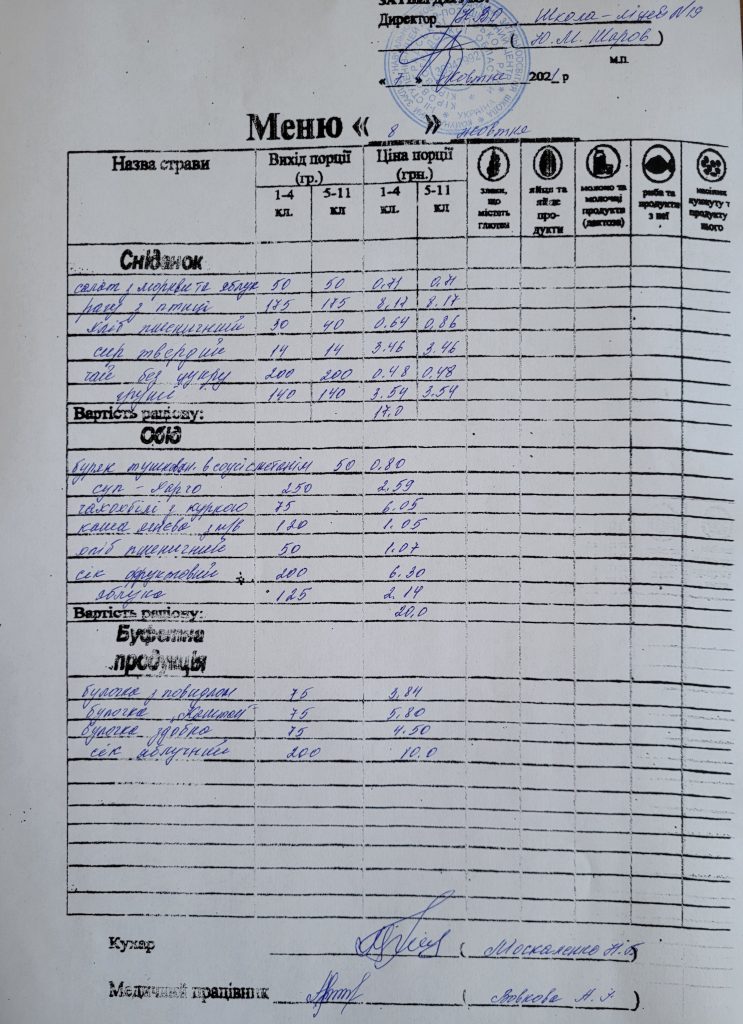 ЗАТВЕРДЖУЮ:
Директор НВО Школа-ліцей №19
( Ю.М. Шаров )
м.п.
« 7 » жовтня 2021 р
Меню « 8 » жовтня
Назва страви Вихід порції (гр.) Ціна порції (грн.) злаки, що містять глютен яйця та яйце продукти молоко та молочні продукти (лактоза) риба та продукти з неї насіння кунжуту т продукту нього
1-4 кл. 5-11 кл 1-4 кл. 5-11 кл
Сніданок
салат з моркви та яблук 50 50 0,71 0,71
рагу з птиці 175 175 8,17 8.17
хліб пшеничний 30 40 0.64 0,86
сир твердий 14 14 3.46 3.46
чай без цукру 200 200 0.48 0,48
груші 140 140 3.54 3.54
Вартість раціону: 17.0
Обід
буряк тушкован. в соусі сметанім 50 0,80
суп - харчо 250 2.59
чахохбілі з куркою 75 6.05
каша ячнева з м/в 120 1.05
хліб пшеничний 50 1.07
сік фруктовий 200 6.30
яблука 125 2.14
Вартість раціону: 20.0
Буфетна
продукція
булочка з повидлом 75 5,84
булочка „Каштан" 75 5,80
булочка здобна 75 4.50
сік яблучний 200 10.0
Кухар ( Москаленко Н.Б. )
Медичний працівник ( Вовкова А. )